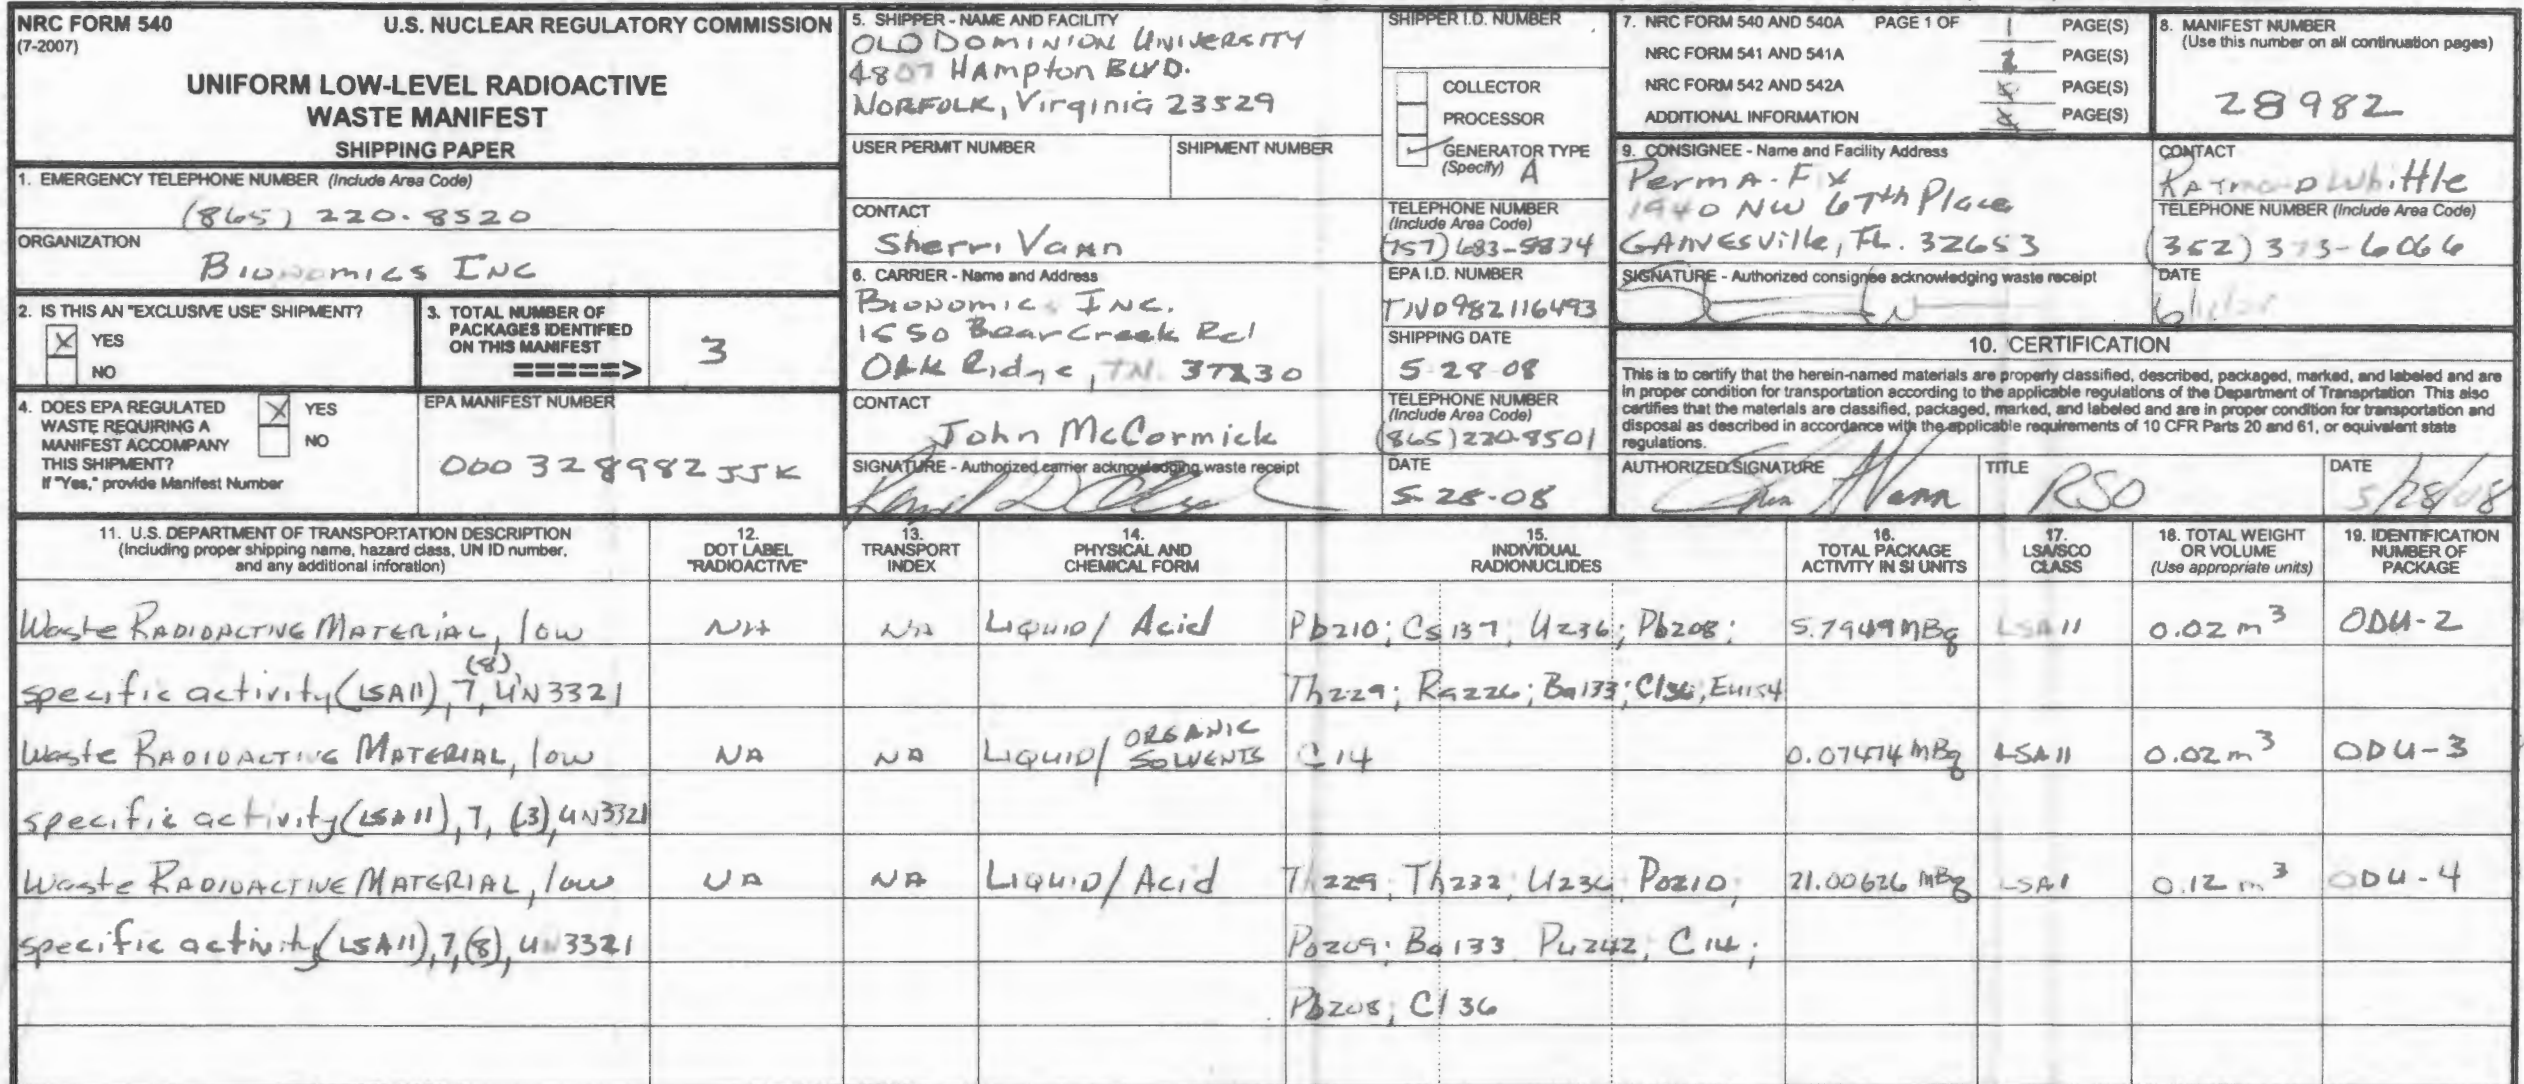 NRC FORM 540
(7-2007)
U.S. NUCLEAR REGULATORY COMMISSION
UNIFORM LOW-LEVEL RADIOACTIVE
WASTE MANIFEST
SHIPPING PAPER
1. EMERGENCY TELEPHONE NUMBER (Include Area Code)
(865) 220-8520
ORGANIZATION
Bionomics INC
2. IS THIS AN "EXCLUSIVE USE" SHIPMENT?
X YES
NO
3. TOTAL NUMBER OF
PACKAGES IDENTIFIED
ON THIS MANIFEST
=====>
3
4. DOES EPA REGULATED
WASTE REQUIRING A
MANIFEST ACCOMPANY
THIS SHIPMENT?
If "Yes," provide Manifest Number
X YES
NO
EPA MANIFEST NUMBER
000328982JJK
5. SHIPPER - NAME AND FACILITY
OLD DOMINION UNIVERSITY
4807 HAmpton BLVD.
NORFOLK, Virginia 23529
SHIPPER I.D. NUMBER
COLLECTOR
PROCESSOR
GENERATOR TYPE
(Specify) A
USER PERMIT NUMBER
SHIPMENT NUMBER
CONTACT
Sherri Vann
TELEPHONE NUMBER
(Include Area Code)
6. CARRIER - Name and Address
Bionomics INC.
1550 Bear Creek Rd
OAk Ridge, TN. 37830
EPA I.D. NUMBER
TND982116493
SHIPPING DATE
5-28-08
CONTACT
John McCormick
TELEPHONE NUMBER
(Include Area Code)
(865)220-8501
SIGNATURE - Authorized carrier acknowledging waste receipt
DATE
5-28-08
7. NRC FORM 540 AND 540A PAGE 1 OF 1 PAGE(S)
NRC FORM 541 AND 541A PAGE(S)
NRC FORM 542 AND 542A PAGE(S)
ADDITIONAL INFORMATION PAGE(S)
8. MANIFEST NUMBER
(Use this number on all continuation pages)
28982
9. CONSIGNEE - Name and Facility Address
PermA-Fix
1940 NW 67th Place
GAINESville, FL. 32653
CONTACT
RAYMOND Whittle
TELEPHONE NUMBER (Include Area Code)
(352) 373-6066
SIGNATURE - Authorized consignee acknowledging waste receipt
DATE
10. CERTIFICATION
This is to certify that the herein-named materials are properly classified, described, packaged, marked, and labeled and are
in proper condition for transportation according to the applicable regulations of the Department of Transprtation This also
certifies that the materials are classified, packaged, marked, and labeled and are in proper condition for transportation and
disposal as described in accordance with the applicable requirements of 10 CFR Parts 20 and 61, or equivalent state
regulations.
AUTHORIZED SIGNATURE
TITLE
RSO
DATE
5/28/08
11. U.S. DEPARTMENT OF TRANSPORTATION DESCRIPTION
(Including proper shipping name, hazard class, UN ID number,
and any additional inforation)
12.
DOT LABEL
"RADIOACTIVE"
13.
TRANSPORT
INDEX
14.
PHYSICAL AND
CHEMICAL FORM
15.
INDIVIDUAL
RADIONUCLIDES
16.
TOTAL PACKAGE
ACTIVITY IN SI UNITS
17.
LSA/SCO
CLASS
18. TOTAL WEIGHT
OR VOLUME
(Use appropriate units)
19. IDENTIFICATION
NUMBER OF
PACKAGE
Waste RADIOACTIVE MATERIAL, low NA NA LIQUID/ Acid Pb210; Cs137, U236; Pb208; 5.7949MBq LSA11 0.02 m³ ODU-2
specific activity(LSA11), 7, (8) UN3321 Th229; Ra226; Ba133; Cl36, Eu154
Waste RADIOACTIVE MATERIAL, low NA NA LIQUID/ ORGANIC SOLVENTS C14 0.07474 MBq LSA11 0.02 m³ ODU-3
specific activity(LSA11), 7, (3), UN3321
Waste RADIOACTIVE MATERIAL, low NA NA LIQUID/Acid Th229, Th232, U236 Po210; 21.00626 MBq LSA1 0.12 m³ ODU-4
specific activity(LSA11),7,(8), UN3321 Po209; Ba133 Pu242, C14;
Pb208; Cl36